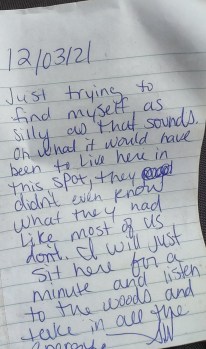 12/03/21
Just trying to
find myself as
silly as that sounds.
Oh what it would have
been to live here in
this spot, they
didnt even know
what they had
like most of us
dont. I will just
sit here for a
minute and listen
to the woods and
take in all the